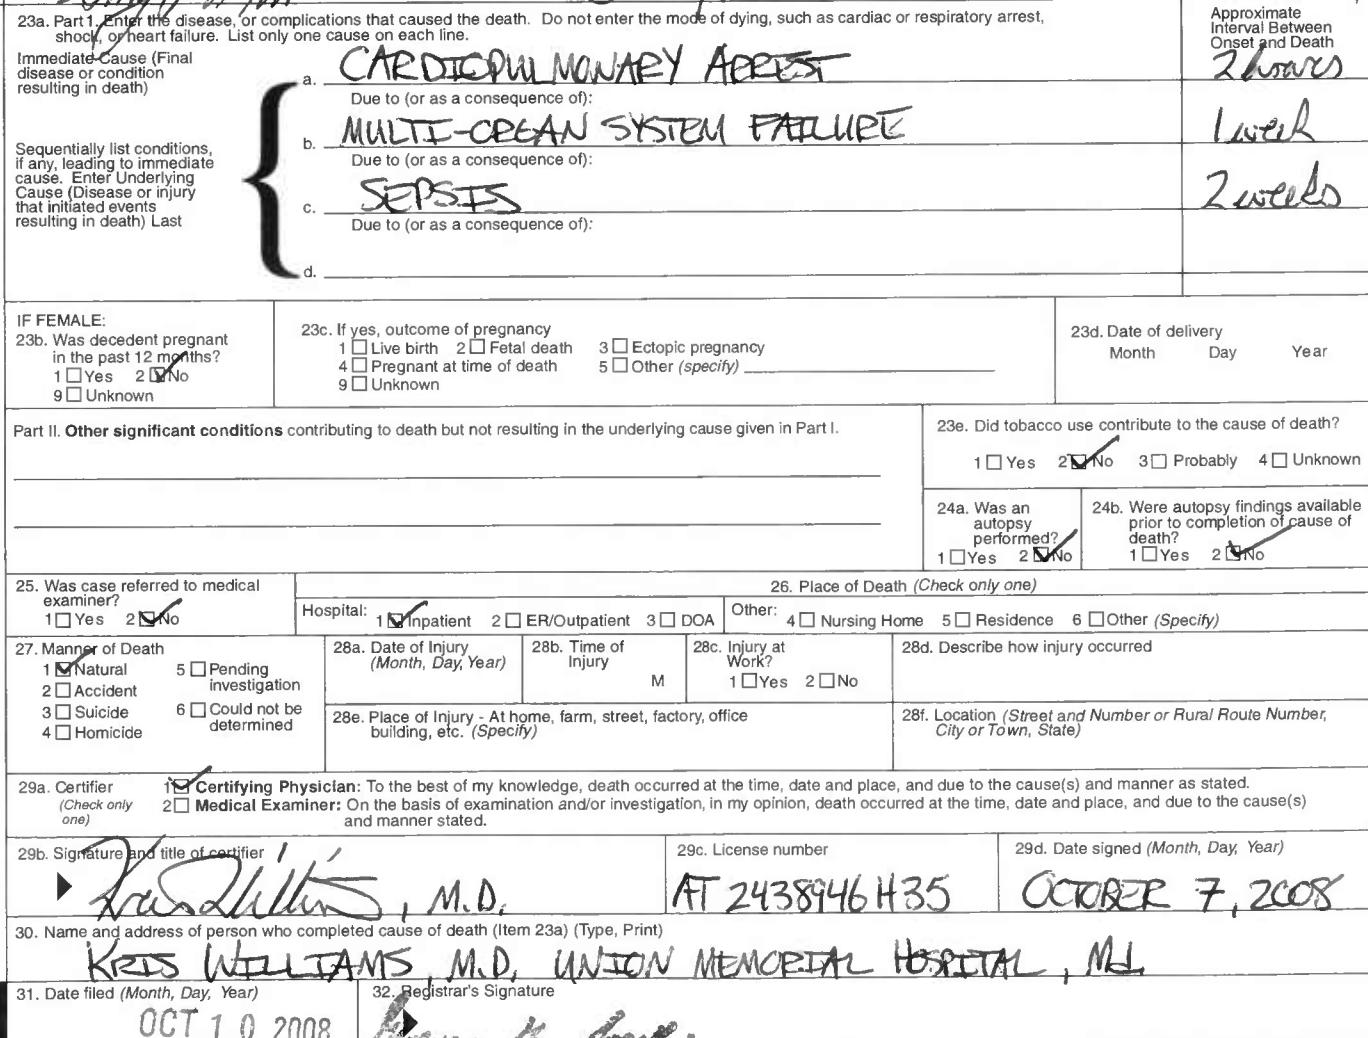 23a. Part 1. Enter the disease, or complications that caused the death. Do not enter the mode of dying, such as cardiac or respiratory arrest,
shock, or heart failure. List only one cause on each line.
Approximate
Interval Between
Onset and Death
Immediate Cause (Final
disease or condition
resulting in death)
a. CARDIOPULMONARY ARREST 2 hours
Due to (or as a consequence of):
b. MULTI-ORGAN SYSTEM FAILURE 1 week
Sequentially list conditions,
if any, leading to immediate
cause. Enter Underlying
Cause (Disease or injury
that initiated events
resulting in death) Last
Due to (or as a consequence of):
c. SEPSIS 2 weeks
Due to (or as a consequence of):
d.
IF FEMALE:
23b. Was decedent pregnant
in the past 12 months?
1 Yes 2 No
9 Unknown
23c. If yes, outcome of pregnancy
1 Live birth 2 Fetal death 3 Ectopic pregnancy
4 Pregnant at time of death 5 Other (specify)
9 Unknown
23d. Date of delivery
Month Day Year
Part II. Other significant conditions contributing to death but not resulting in the underlying cause given in Part I.
23e. Did tobacco use contribute to the cause of death?
1 Yes 2 No 3 Probably 4 Unknown
24a. Was an
autopsy
performed?
1 Yes 2 No
24b. Were autopsy findings available
prior to completion of cause of
death?
1 Yes 2 No
25. Was case referred to medical
examiner?
1 Yes 2 No
26. Place of Death (Check only one)
Hospital: 1 Inpatient 2 ER/Outpatient 3 DOA Other: 4 Nursing Home 5 Residence 6 Other (Specify)
27. Manner of Death
1 Natural 5 Pending
investigation
2 Accident
3 Suicide 6 Could not be
determined
4 Homicide
28a. Date of Injury
(Month, Day, Year)
28b. Time of
Injury
M
28c. Injury at
Work?
1 Yes 2 No
28d. Describe how injury occurred
28e. Place of Injury - At home, farm, street, factory, office
building, etc. (Specify)
28f. Location (Street and Number or Rural Route Number,
City or Town, State)
29a. Certifier
(Check only
one)
1 Certifying Physician: To the best of my knowledge, death occurred at the time, date and place, and due to the cause(s) and manner as stated.
2 Medical Examiner: On the basis of examination and/or investigation, in my opinion, death occurred at the time, date and place, and due to the cause(s)
and manner stated.
29b. Signature and title of certifier
Kris Williams, M.D.
29c. License number
AT 2438946 H35
29d. Date signed (Month, Day, Year)
OCTOBER 7, 2008
30. Name and address of person who completed cause of death (Item 23a) (Type, Print)
KRIS WILLIAMS, M.D. UNION MEMORIAL HOSPITAL, Md.
31. Date filed (Month, Day, Year)
OCT 10 2008
32. Registrar's Signature